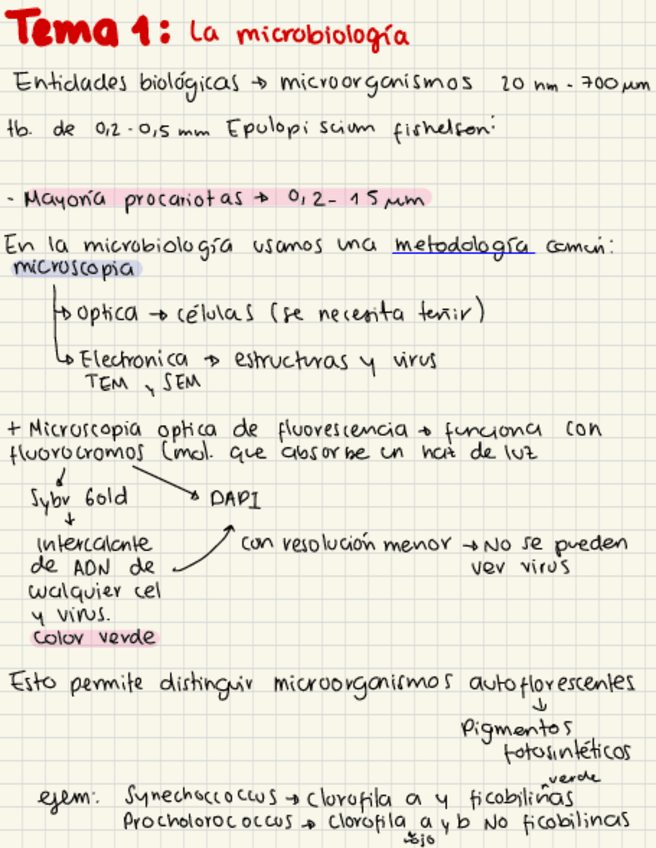 Tema 1: La microbiología
Entidades biológicas → microorganismos 20 nm - 700 µm
tb. de 0,2 - 0,5 mm Epulopi scium fishelson:
- Mayoría procariotas → 0,2 - 15 µm
En la microbiología usamos una metodología común:
microscopia
→ Optica → células (se necesita teñir)
→ Electronica → estructuras y virus
TEM y SEM
+ Microscopia optica de fluorescencia → funciona con
fluorocromos (mol. que absorbe un haz de luz
Sybr Gold
DAPI
Intercalante
de ADN de
cualquier cel
y virus.
Color verde
con resolución menor → No se pueden
ver virus
Esto permite distinguir microorganismos autoflorescentes
Pigmentos
fotosintéticos
verde
ejem: Synechoccoccus → clorofila a y ficobilinas
Procholorococcus → clorofila a y b No ficobilinas
rojo